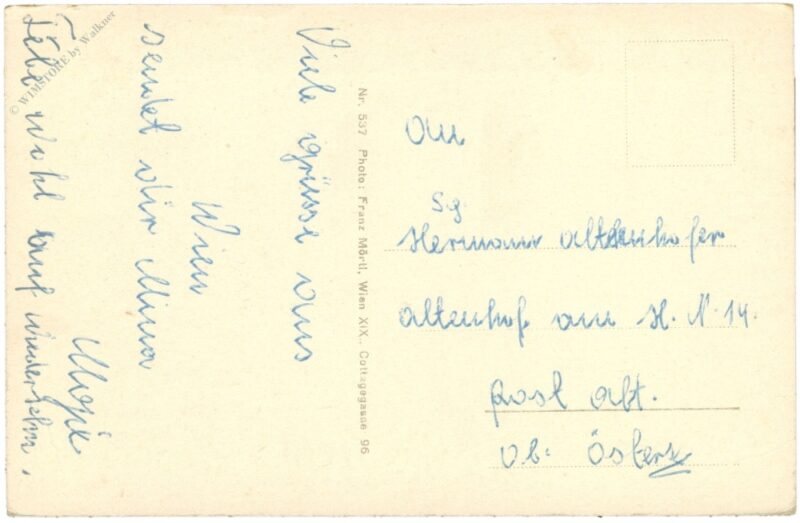 Viele grüsse aus
Wien
sendet dir Mina
Lebe wohl auf wiedersehn.
Nr. 537 Photo: Franz Mörtl, Wien XIX., Cottagegasse 96
An
Hermann Altenhofer
Altenhof am H. N. 14.
Post Alt.
Ob: Österr
© WIMSTORE by Walkner